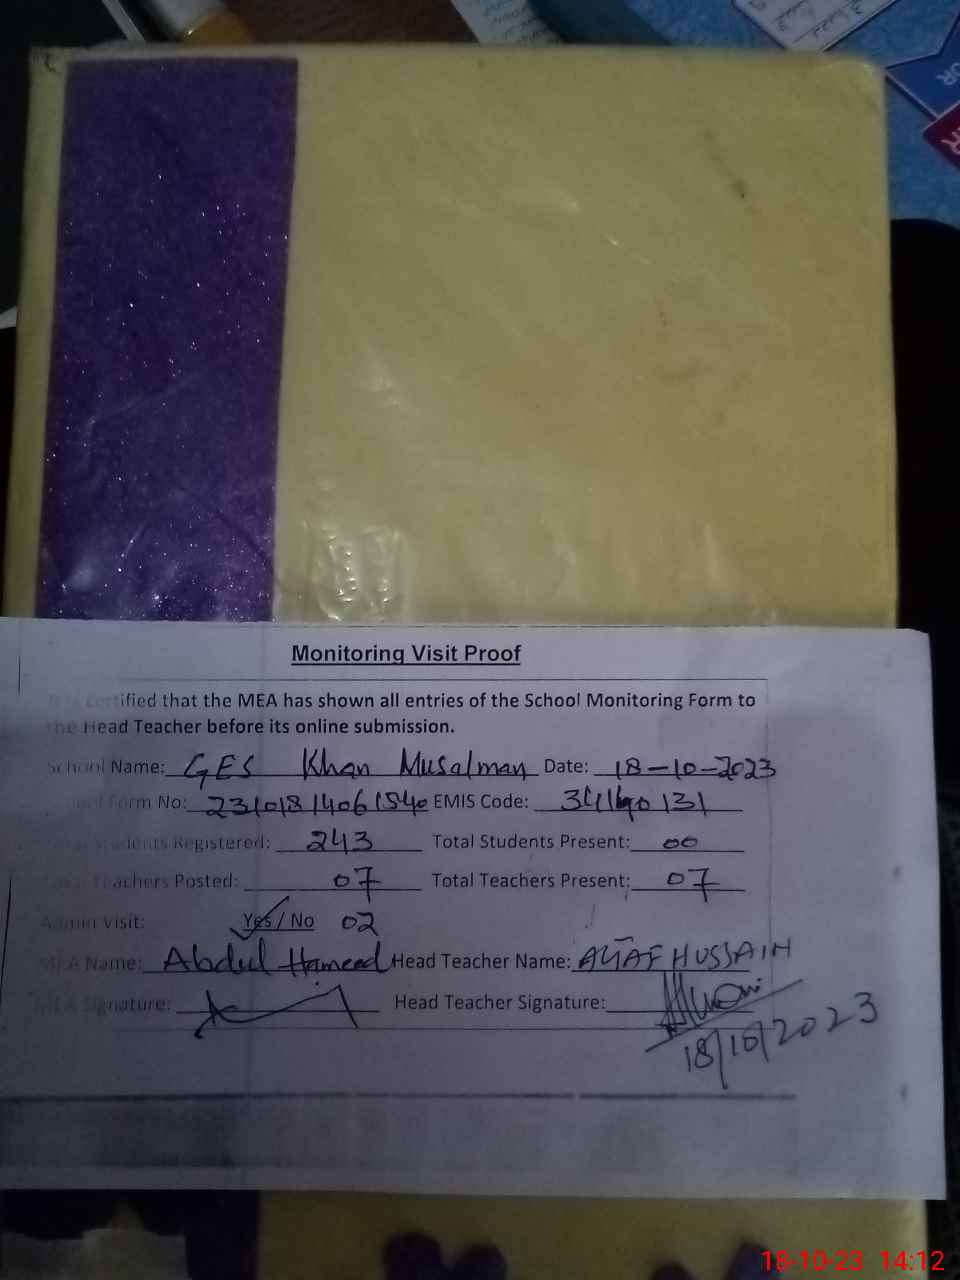 Monitoring Visit Proof
certified that the MEA has shown all entries of the School Monitoring Form to
the Head Teacher before its online submission.
School Name: GES Khan Musalman Date: 18-10-2023
Form No: 23101814061540 EMIS Code:
Students Registered: 243 Total Students Present: 00
Teachers Posted: 07 Total Teachers Present: 07
Admin Visit: Yes / No 02
MEA Name: Abdul Hameed Head Teacher Name: ALTAF HUSSAIN
MEA Signature: Head Teacher Signature:
18/10/2023
18-10-23 14:12